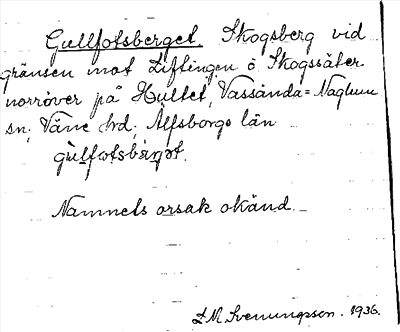 Gullfotsberget. Skogsberg vid
gränsen mot Liftingen ö Skogssäter
norröver på Hultet, Vassända=Naglum
sn; Väne hrd; Älfsborgs län
gùlfωtsbàrgət.
Namnets orsak okänd.
L M Svenungsson. 1936.